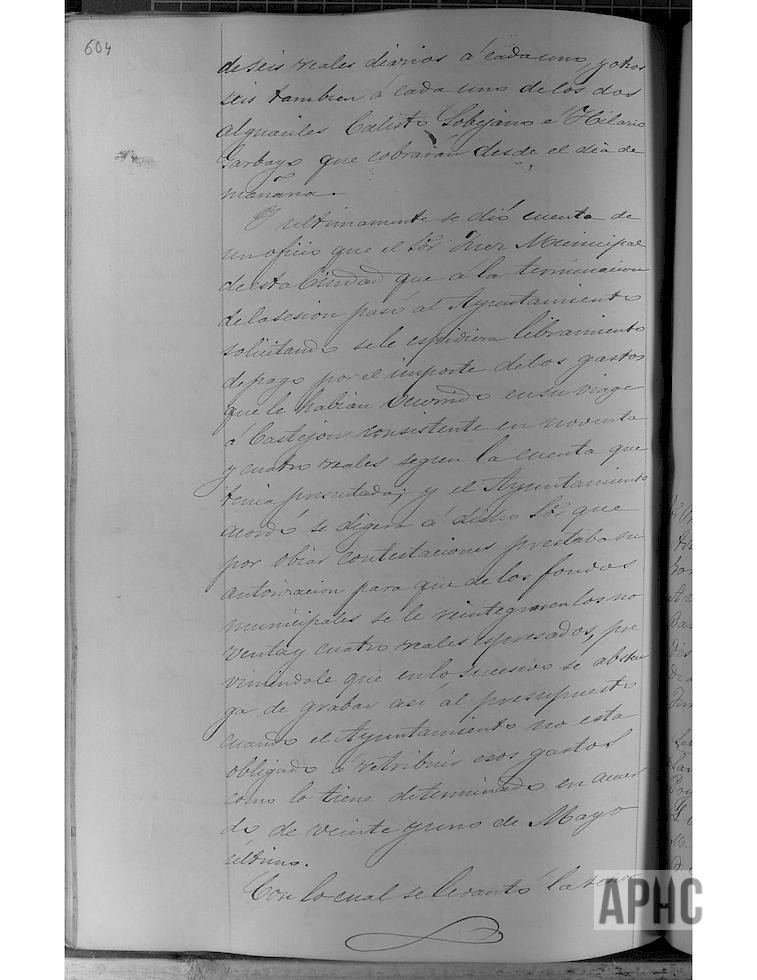 604
de seis reales diarios á cada uno, y otros
seis tambien á cada uno de los dos
alguaciles Calisto Lobejano é Hilario
Garbayo que cobrarán desde el dia de
mañana.
Y ultimamente se dió cuenta de
un oficio que el Sor Juez Municipal
de esta Ciudad que á la terminacion
de la sesion pasó al Ayuntamiento
solicitando se le espidiera libramiento
de pago por el importe de los gastos
que le habian ocurrido en su viage
a Castejon consistente en noventa
y cuatro reales segun la cuenta que
tenia presentada; y el Ayuntamiento
acordó se digera á dicho Sor que
por obiar contestaciones prestaba su
autorizacion para que de los fondos
municipales se le reintegrasen los no
venta y cuatro reales espresados, pre
viniendole que en lo sucesivo se absten
ga de grabar asi al presupuesto
cuando el Ayuntamiento no esta
obligado á retribuir esos gastos
como lo tiene determinado en acuer
do de veinte y uno de Mayo
último.
Con lo cual se levantó la
APHC